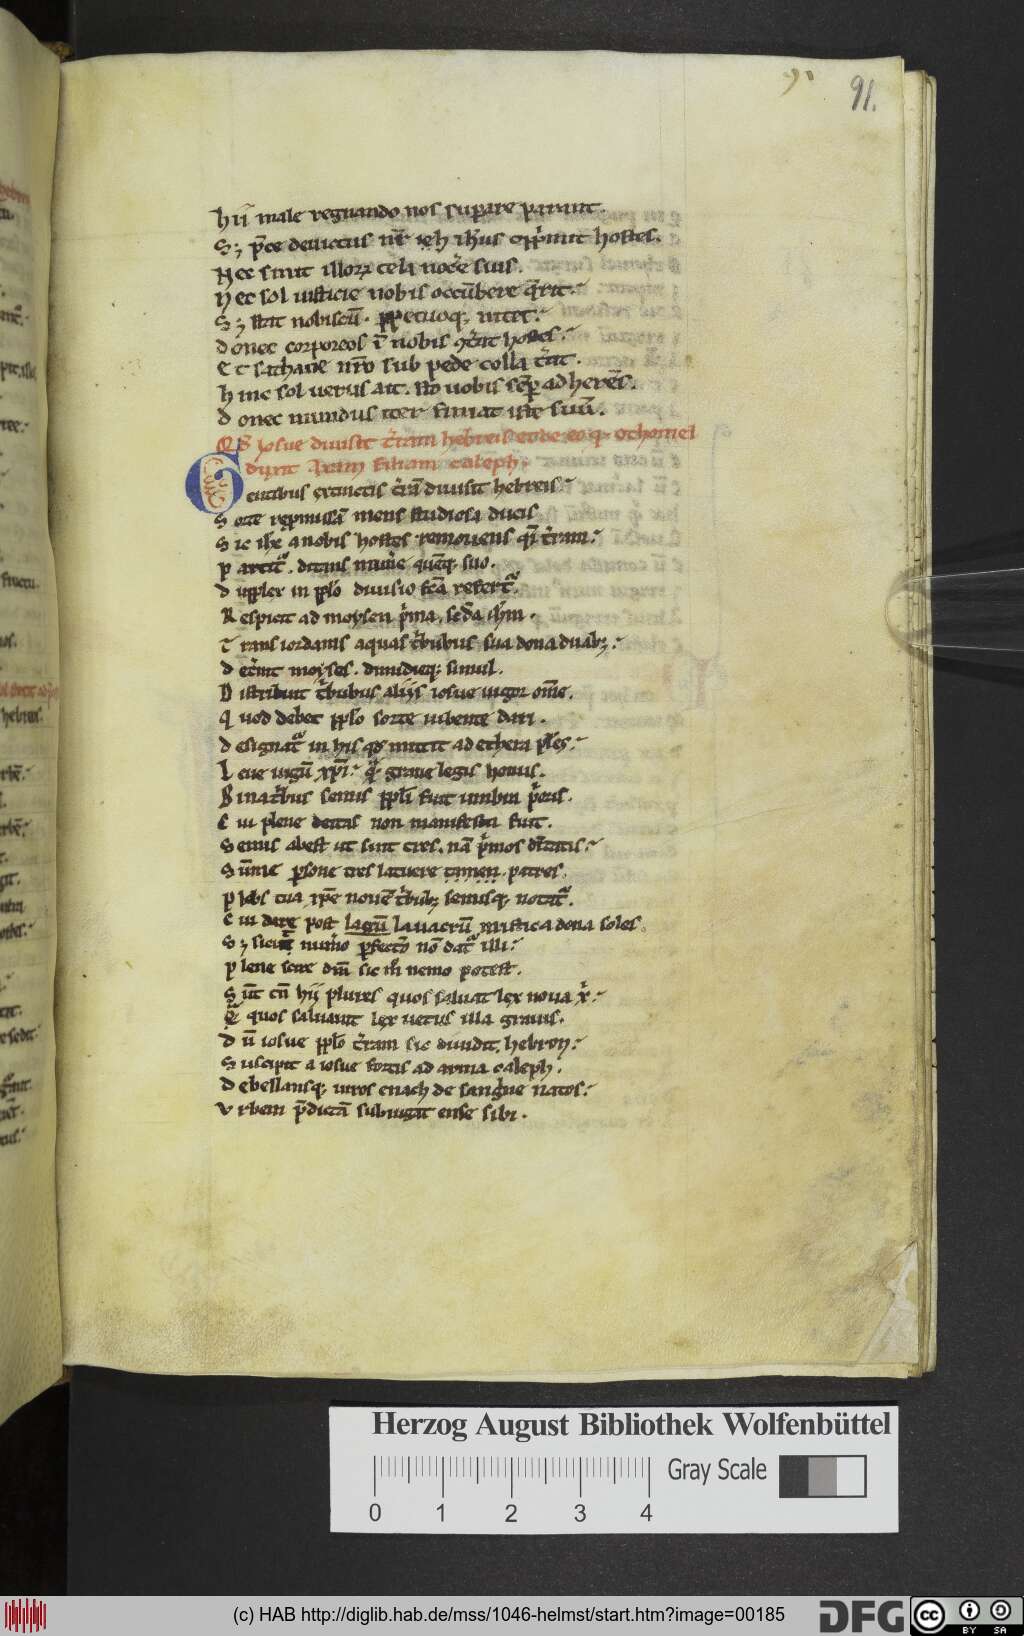 91.
hii male regnando nos sup̄are parant.
Sꝫ p̄ce deuictus nr̄ ieh ih̄us opp̄mit hostes.
Nec sinit illoꝝ tela noce̅ suis.
Nec sol iusticie nobis occūbere q̄rit.
Sꝫ stat nobiscū. ꝑpetuoq; nitet.
Donec corporeos ī nobis hostes.
Et sathane nr̄o sub pede colla t̄at.
Hinc sol uerus ait. sto uobis sēp adherēs.
Donec mundus iter finiat iste suū.
Qd̄ Iosue diuisit t̄ram hebreis et de eo q. othoniel
duxit Axam filiam caleph.
Gentibus extinctis t̄rā diuisit hebreis
Sorte repmissā mens studiosa ducis
Sic ih̄c a nobis hostes remouens q̄i t̄ram.
Partit᷑. ditans munē quēq; suo.
Dupplex in ppl̄o diuisio fc̄a refert᷑.
Respicit ad moysen p̄ma, sed̄a ih̄m.
Trans iordanis aquas t̄bubus sua dona duabꝫ.
Det̄mt moyses. dimidieq; simul.
Distribuit t̄bubus aliis iosue uigor om̄e.
Quod debet ppl̄o sorte iubente dari.
Designat᷑ in his qd̄ mittit ad ethera pl̄es.
Leue iugū xp̄i. q̄ graue legis honus.
Bina t̄bus semis ppl̄i fuit umbra p̄oris.
Cui plene deitas non manifesta fuit.
Semis abest ut sint tres. nā p̄mos dītatis.
Sūme ꝑsone tres latuere tamen patres.
Plebs tua xp̄e nouē t̄bubꝫ semisq; notat᷑.
Cui dare post lagū lauacrū mistica dona soles.
Sꝫ sicut num̄o ꝑfecto nō dat᷑ illi.
Plene scire dm̄ sic m̄ nemo potest.
Sūt cū hij plures quos saluat lex noua xp̄.
Q̄ quos saluauit lex uetus illa grauis.
Dū iosue ppl̄o t̄ram sic diuidit. hebron.
Suscipit a iosue fortis ad arma caleph.
Debellansq; uiros enach de sangine natos.
Vrbem p̄dictā subiugat ense sibi.
Herzog August Bibliothek Wolfenbüttel
Gray Scale
0 1 2 3 4
(c) HAB http://diglib.hab.de/mss/1046-helmst/start.htm?image=00185
DFG
cc BY SA